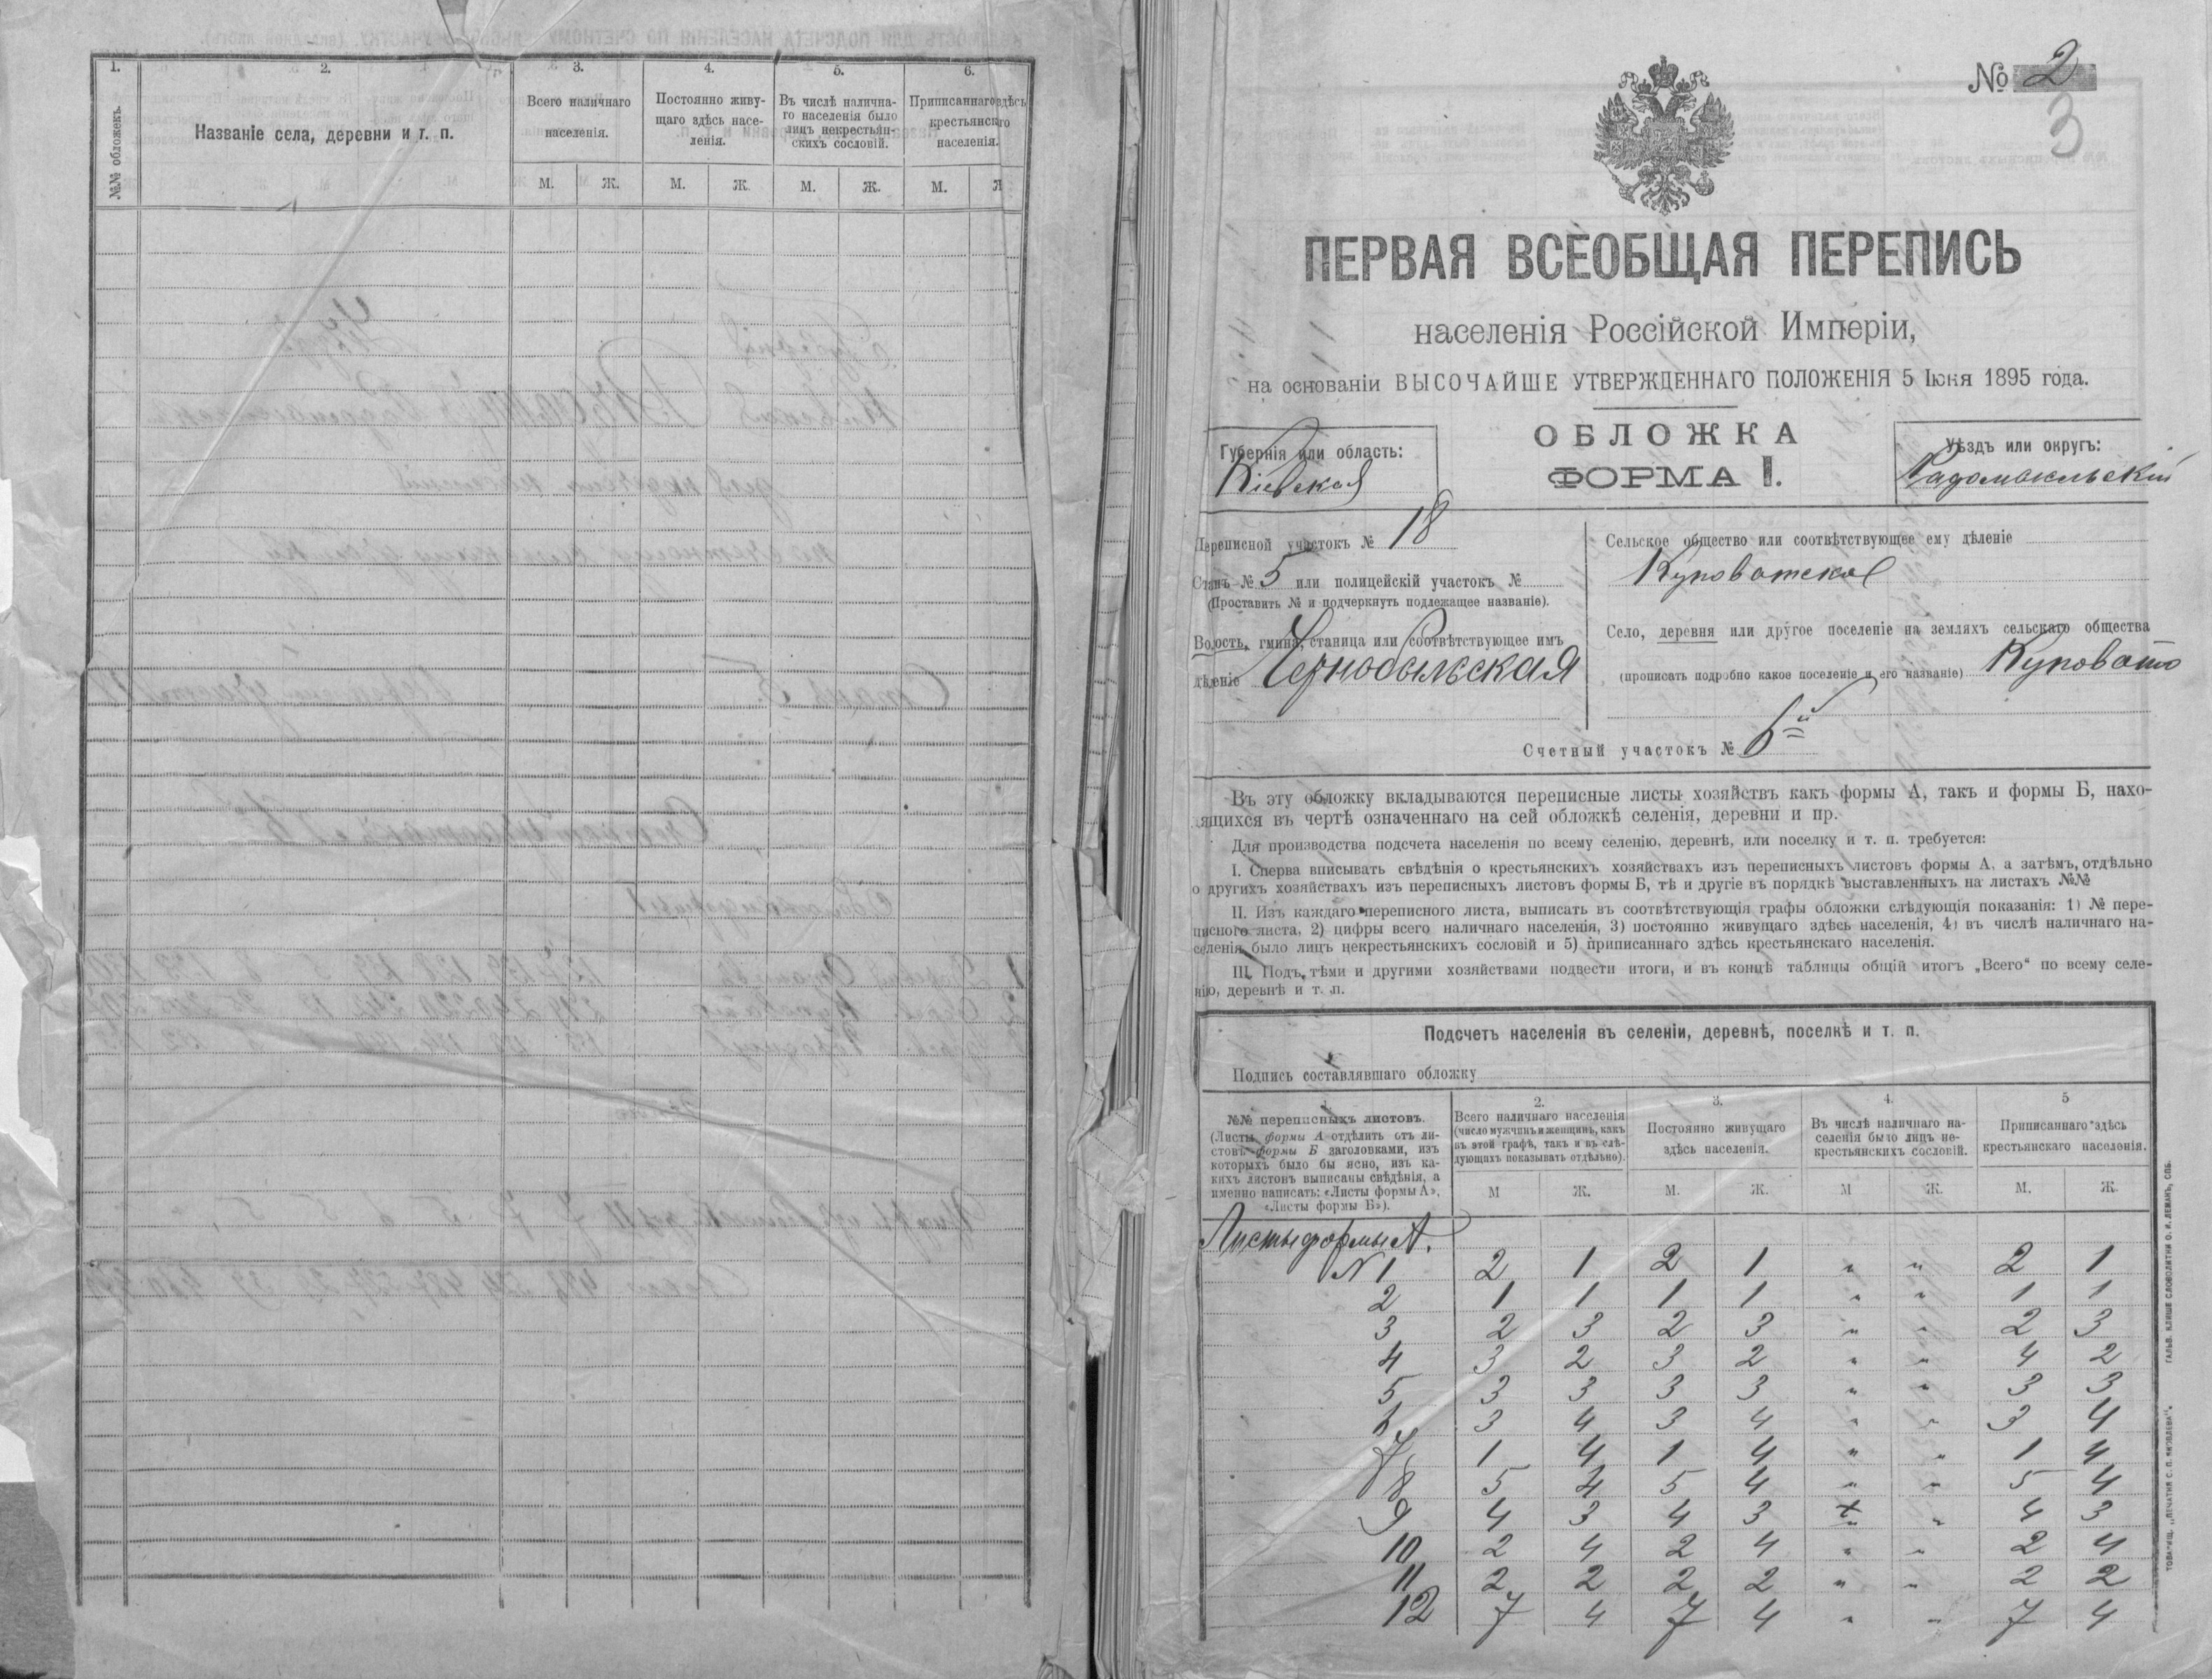 1.
2.
3.
4.
5.
6.
№№ обложекъ.
Названіе села, деревни и т. п.
Всего наличнаго
населенія.
Постоянно живу-
щаго здѣсь насе-
ленія.
Въ числѣ налична-
го населенія было
лицъ некрестьян-
скихъ сословій.
Приписаннаго здѣсь
крестьянскаго
населенія.
М. Ж. М. Ж. М. Ж. М.
№ 2
3
ПЕРВАЯ ВСЕОБЩАЯ ПЕРЕПИСЬ
населенія Россійской Имперіи,
на основаніи ВЫСОЧАЙШЕ УТВЕРЖДЕННАГО ПОЛОЖЕНІЯ 5 Іюня 1895 года.
Губернія или область:
Кіевская
ОБЛОЖКА
ФОРМА I.
Уѣздъ или округъ:
Радомысльскій
Переписной участокъ № 18
Станъ № 5 или полицейскій участокъ №
(Проставить № и подчеркнуть подлежащее названіе).
Волость, гмина, станица или соотвѣтствующее имъ
дѣленіе Чернобыльская
Сельское общество или соотвѣтствующее ему дѣленіе
Куповатское
Село, деревня или другое поселеніе на земляхъ сельскаго общества
(прописать подробно какое поселеніе и его названіе) Куповато
Счетный участокъ № 6й
Въ эту обложку вкладываются переписные листы хозяйствъ какъ формы А, такъ и формы Б, нахо-
дящихся въ чертѣ означеннаго на сей обложкѣ селенія, деревни и пр.
Для производства подсчета населенія по всему селенію, деревнѣ, или поселку и т. п. требуется:
I. Сперва вписывать свѣдѣнія о крестьянскихъ хозяйствахъ изъ переписныхъ листовъ формы А, а затѣмъ, отдѣльно
о другихъ хозяйствахъ изъ переписныхъ листовъ формы Б, тѣ и другіе въ порядкѣ выставленныхъ на листахъ №№
II. Изъ каждаго переписного листа, выписать въ соотвѣтствующія графы обложки слѣдующія показанія: 1) № пере-
писного листа, 2) цифры всего наличнаго населенія, 3) постоянно живущаго здѣсь населенія, 4) въ числѣ наличнаго на-
селенія было лицъ некрестьянскихъ сословій и 5) приписаннаго здѣсь крестьянскаго населенія.
III. Подъ тѣми и другими хозяйствами подвести итоги, и въ концѣ таблицы общій итогъ „Всего“ по всему селе-
нію, деревнѣ и т. п.
Подсчетъ населенія въ селеніи, деревнѣ, поселкѣ и т. п.
Подпись составлявшаго обложку
1.
№№ переписныхъ листовъ.
(Листы формы А отдѣлить отъ ли-
стовъ формы Б заголовками, изъ
которыхъ было бы ясно, изъ ка-
кихъ листовъ выписаны свѣдѣнія, а
именно написать: «Листы формы А»,
«Листы формы Б»).
2.
Всего наличнаго населенія
(число мужчинъ и женщинъ, какъ
въ этой графѣ, такъ и въ слѣ-
дующихъ показывать отдѣльно).
3.
Постоянно живущаго
здѣсь населенія.
4.
Въ числѣ наличнаго на-
селенія было лицъ не-
крестьянскихъ сословій.
5
Приписаннаго здѣсь
крестьянскаго населенія.
М Ж. М. Ж. М Ж. М. Ж.
Листы формы А.
№ 1 2 1 2 1 " " 2 1
2 1 1 1 1 " " 1 1
3 2 3 2 3 " " 2 3
4 3 2 3 2 " " 4 2
5 3 3 3 3 " " 3 3
6 3 4 3 4 " " 3 4
7 1 4 1 4 " " 1 4
8 5 4 5 4 " " 5 4
9 4 3 4 3 " " 4 3
10 2 4 2 4 " " 2 4
11 2 2 2 2 " " 2 2
12 7 4 7 4 " " 7 4
ТОВАРИЩ. „ПЕЧАТНЯ С. П. ЯКОВЛЕВА“. ГАЛЬВ. КЛИШЕ СЛОВОЛИТНИ О. И. ЛЕМАНЪ, СПБ.